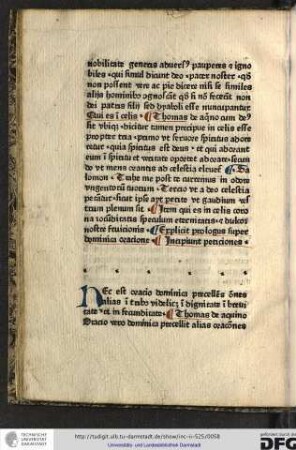 nobilitate generis aduersꝰ pauperes ⁊ igno
biles ⁊ qui simul dicunt deo ⁊ pater noster ⁊ qd̄
non possent vere ac pie dicere nisi se similes
alijs hominibꝰ agnoscāt qd̄ si nō fecerīt non
dei patris filij sed dyaboli esse nuncupantur
Qui es ī celis ¶ Thomas de aq̄no cum deꝰ
sit vbiqꝫ dicitur tamen precipue in celis esse
propter tria primo vt seruore spiritus adore
tur quia spiritus est deus ⁊ et qui adorant
eum ī spiritu et veritate oportet adorare secun
do vt mens orantis ad celestia eleuet̄ ¶ Sa
lomon Trahe me post te curremus in odore
vngentorū tuorum Tercio vt a deo celestia
petātur sicut ipse ayt petite vt gaudium ves
trum plenum sit ¶ Item qui es in celis coro
na iocūditatis speculum eternitatis ⁊ dulcor
nostre fruicionis ¶ Explicit prologus super
dominica oracione ¶ Incipiunt peticiones
Nec est oracio dominica precellēs ōnes
alias ī tribꝰ videlicꝫ ī dignitate ī breui
tate ⁊ et in fecunditate ¶ Thomas de aquino
Oracio vero dominica precellit alias oraciōnes
TECHNISCHE
UNIVERSITÄT
DARMSTADT
http://tudigit.ulb.tu-darmstadt.de/show/inc-ii-525/0058
Universitäts- und Landesbibliothek Darmstadt
gefördert durch die
DFG